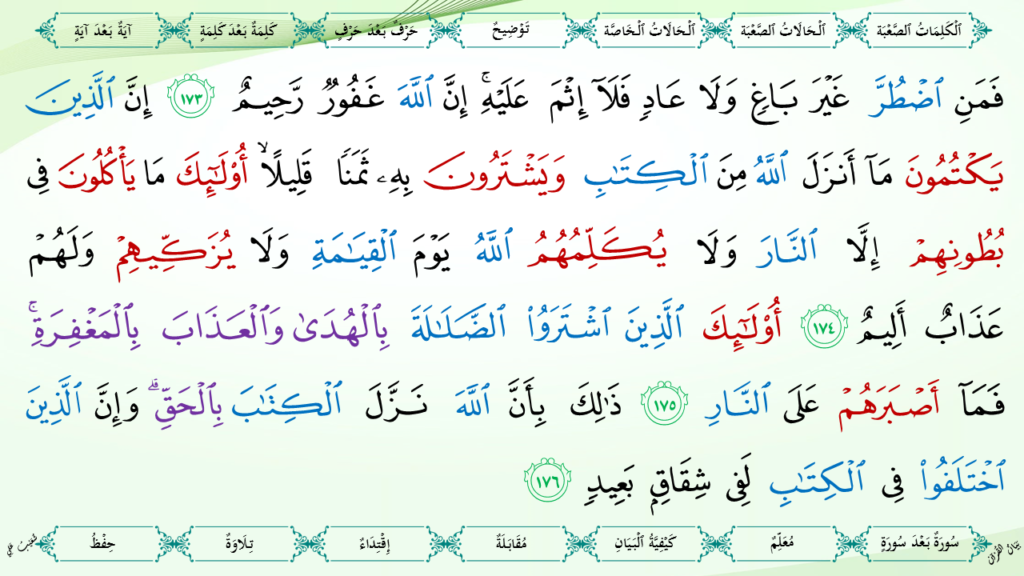 اَلْكَلِمَاتُ الصَّعْبَة اَلْحَالَاتُ الصَّعْبَة اَلْحَالَاتُ الْخَاصَّة تَوْضِيحٌ حَرْفٌ بَعْدَ حَرْفٍ كَلِمَةٌ بَعْدَ كَلِمَةٍ آيَةٌ بَعْدَ آيَةٍ
فَمَنِ ٱضْطُرَّ غَيْرَ بَاغٍ وَلَا عَادٍ فَلَآ إِثْمَ عَلَيْهِ ۚ إِنَّ ٱللَّهَ غَفُورٌ رَّحِيمٌ ١٧٣ إِنَّ ٱلَّذِينَ
يَكْتُمُونَ مَآ أَنزَلَ ٱللَّهُ مِنَ ٱلْكِتَٰبِ وَيَشْتَرُونَ بِهِۦ ثَمَنًا قَلِيلًا ۙ أُو۟لَٰٓئِكَ مَا يَأْكُلُونَ فِى
بُطُونِهِمْ إِلَّا ٱلنَّارَ وَلَا يُكَلِّمُهُمُ ٱللَّهُ يَوْمَ ٱلْقِيَٰمَةِ وَلَا يُزَكِّيهِمْ وَلَهُمْ
عَذَابٌ أَلِيمٌ ١٧٤ أُو۟لَٰٓئِكَ ٱلَّذِينَ ٱشْتَرَوُا۟ ٱلضَّلَٰلَةَ بِٱلْهُدَىٰ وَٱلْعَذَابَ بِٱلْمَغْفِرَةِ ۚ
فَمَآ أَصْبَرَهُمْ عَلَى ٱلنَّارِ ١٧٥ ذَٰلِكَ بِأَنَّ ٱللَّهَ نَزَّلَ ٱلْكِتَٰبَ بِٱلْحَقِّ ۗ وَإِنَّ ٱلَّذِينَ
ٱخْتَلَفُوا۟ فِى ٱلْكِتَٰبِ لَفِى شِقَاقٍۭ بَعِيدٍ ١٧٦
سُورَةٌ بَعْدَ سُورَةٍ مُعَلِّمٌ كَيْفِيَّةُ الْبَيَانِ مُقَابَلَةٌ إِقْتِدَاءٌ تِلَاوَةٌ حِفْظٌ
بَيَانُ القُرْآن